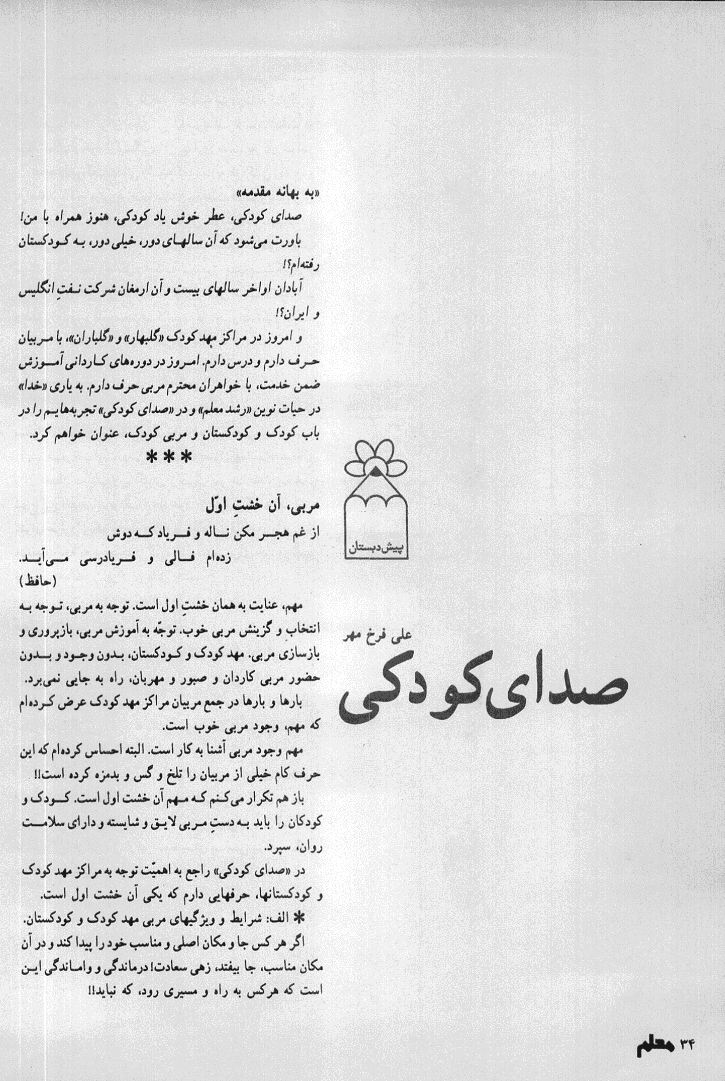 «به بهانه مقدمه»
صدای کودکی، عطر خوش یاد کودکی، هنوز همراه با من!
باورت می‌شود که آن سالهـای دور، خیلی دور، بـه کـودکستان
رفته‌ام؟!
آبادان اواخر سالهای بیست و آن ارمغان شرکت نـفـتِ انگلیس
و ایران؟!
و امروز در مراکز مهد کودک «گلبهار» و «گلباران»، با مـربیان
حرف دارم و درس دارم. امـروز در دوره‌های کـاردانی آمـوزش
ضمن خدمت، با خواهران محترم مربی حرف دارم. به یاری «خدا»
در حیات نوین «رشد معلم» و در «صدای کودکی» تجربه‌هایـم را در
باب کودک و کودکستان و مربی کودک، عنوان خواهم کرد.
***
مربی، آن خشتِ اوّل
از غم هجـر مکن نـاله و فـریاد کـه دوش
زده‌ام فـالی و فـریادرسی مـی‌آیـد.
(حافظ)
مهم، عنایت به همان خشتِ اول است. توجه به مربی، تـوجه بـه
انتخاب و گزینش مربی خوب. توجّه به آموزش مربی، بازپروری و
بازسازی مربی. مهد کودک و کـودکستان، بـدون وجـود و بـدون
حضور مربی کاردان و صبور و مهربان، راه به جایی نمی‌برد.
بارها و بارها در جمع مربیان مراکز مهد کودک عرض کـرده‌ام
که مهم، وجود مربی خوب است.
مهم وجود مربی آشنا به کار است. البته احساس کرده‌ام که این
حرف کام خیلی از مربیان را تلخ و گس و بدمزه کرده است!!
باز هم تکرار می‌کنـم کـه مـهـم آن خشت اول است. کـودک و
کودکان را باید بـه دستِ مـربی لایـق و شایسته و دارای سلامـت
روان، سپرد.
در «صدای کودکی» راجع به اهمیّت توجه به مراکز مهد کودک
و کودکستانها، حرفهایی دارم که یکی آن خشت اول است.
* الف: شرایط و ویژگیهای مربی مهد کودک و کودکستان.
اگر هر کس جا و مکان اصلی و مناسب خود را پیدا کند و در آن
مکان مناسب، جا بیفتد، زهی سعادت! درماندگی و وامانـدگی ایـن
است که هرکس به راه و مسیری رود، که نباید!!
پیش دبستان
علی فرخ مهر
صدای کودکی
۳۴ معلم